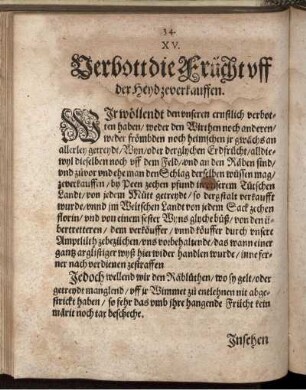 34.
XV.
Verbott die Frücht vff
der Heyd zeverkauffen.
WIr wöllendt den vnseren ernstlich verbot-
ten haben/ weder den Wirthen noch anderen/
weder frömbden noch heimschen jr gwächs an
allerley getreydt/ Wyn/ oder derglychen Erdfrücht/ alldie-
wyl dieselben noch vff dem Feld/ vnd an den Räben sind/
vnd zůvor vnd ehe man den Schlag derselben wüssen mag/
zeverkauffen/ by Peen zechen pfund in vnserem Tütschen
Landt/ von jedem Mütt getreydt/ so dergstalt verkaufft
wurde/ vnnd im Weltschen Landt von jedem Sack zechen
florin/ vnd von einem sester Wyns glyche bůß/ von den ü-
bertretteren/ dem verköuffer/ vnnd köuffer durch vnsere
Amptlüth zebezüchen/ vns vorbehaltende/ das wann einer
gantz arglistiger wyß hier wider handlen wurde/ inne fer-
ner nach verdienen zestraffen.
Jedoch wellend wir den Räblüthen/ wo sy gelt/ oder
getreydt manglend/ vff jr Wimmet zu entlehnen nit abge-
strickt haben/ so sehr das vmb jhre hangende Frücht kein
märit noch tax beschecht.
Insehen